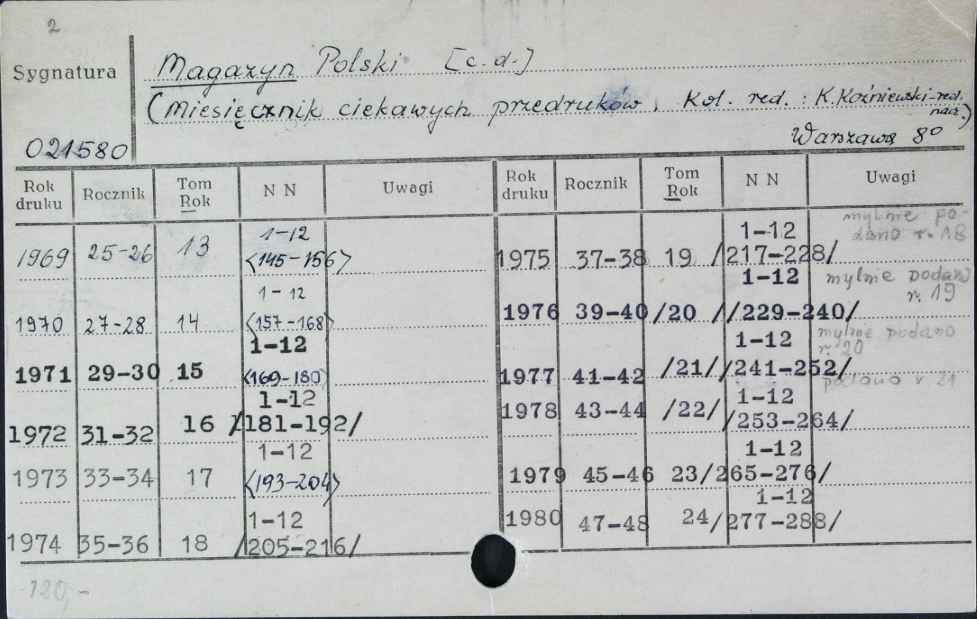 2
Sygnatura
Magazyn Polski [c.d.]
(Miesięcznik ciekawych przedruków, Kol. red. : K. Koźniewski-red.
nacz.)
021580
Warszawa 8°
Rok druku Rocznik Tom Rok N N Uwagi Rok druku Rocznik Tom Rok N N Uwagi
1969 25-26 13 1-12 <145-156>
1970 27-28 14 1-12 <157-168>
1971 29-30 15 1-12 <169-180>
1972 31-32 16 1-12 /181-192/
1973 33-34 17 1-12 <193-204>
1974 35-36 18 1-12 /205-216/
1975 37-38 19 1-12 /217-228/ mylnie podano r. 18
1976 39-40 /20 / 1-12 /229-240/ mylnie podano r. 19
1977 41-42 /21/ 1-12 /241-252/ mylnie podano r. 20
1978 43-44 /22/ 1-12 /253-264/ podano r. 21
1979 45-46 23 1-12 /265-276/
1980 47-48 24 1-12 /277-288/
120,-